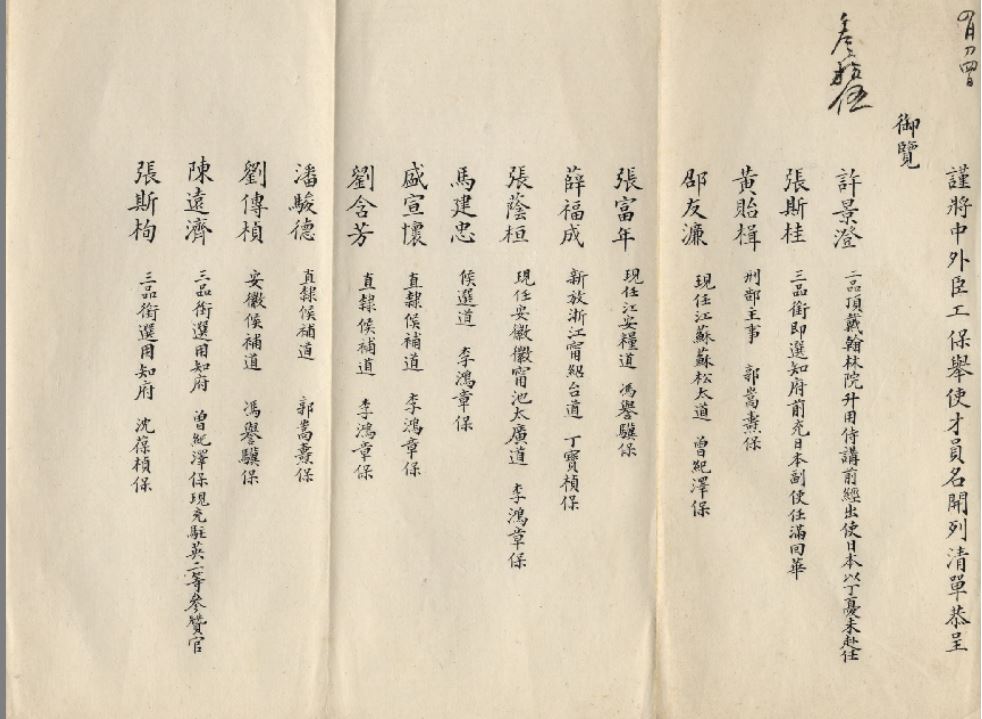 四月初四日
謹將中外臣工保舉使才員名開列清單恭呈
御覽
叁拾伍
許景澄 二品頂戴翰林院升用侍講前經出使日本以丁憂未赴任
張斯桂 三品銜即選知府前充日本副使任滿回華
黃貽楫 刑部主事 郭嵩燾保
邵友濂 現任江蘇蘇松太道 曾紀澤保
張富年 現任江安糧道 馮譽驥保
薛福成 新放浙江甯紹台道 丁寶楨保
張蔭桓 現任安徽徽甯池太廣道 李鴻章保
馬建忠 候選道 李鴻章保
盛宣懷 直隸候補道 李鴻章保
劉含芳 直隸候補道 李鴻章保
潘駿德 直隸候補道 郭嵩燾保
劉傳楨 安徽候補道 馮譽驥保
陳遠濟 三品銜選用知府 曾紀澤保現充駐英二等參贊官
張斯栒 三品銜選用知府 沈葆楨保